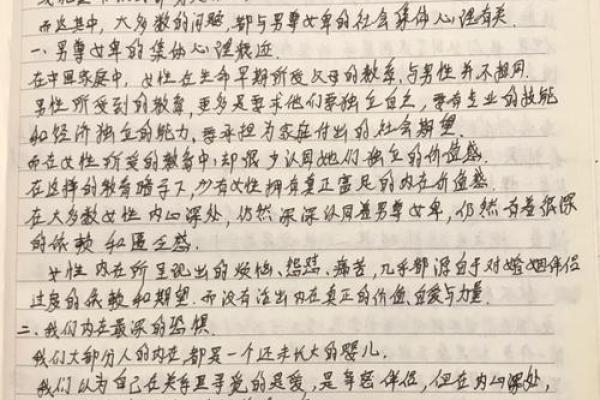 而这其中，大多数的问题，都与男尊女卑的社会集体心理有关.
一、男尊女卑的集体心理概述.
在中国家庭中，女性在生命早期所受父母的教育，与男性并不相同.
男性所受到的教育，更多是要求他们要独立自立，要有专业的技能
和经济独立的能力，要承担为家庭付出的社会期望.
而在女性所受的教育中，却很少认同她们独立的价值感.
在这样的教育暗示下，少有女性拥有真正富足的内在价值感.
在大多数女性内心深处，仍然深深认同着男尊女卑，仍然有着很深
的依赖和匮乏感.
女性内在所呈现出的烦恼、怨怼、痛苦，几乎都源自于对婚姻伴侣
过度的依赖和期望.而没有活出内在真正的价值、自爱与力量.
二、我们内在最深的恐惧.
我们大部分人的内在，都是一个还未长大的婴儿.
我们以为自己在关系里寻觅的是爱，是亲密伴侣，但在内心深处，